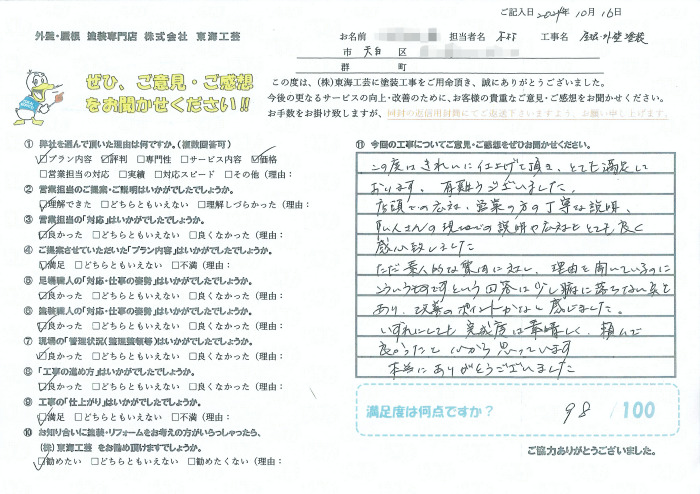 ご記入日 2024年 10月 16日
外壁・屋根 塗装専門店 株式会社 東海工芸
お名前 担当者名 工事名 屋根・外壁塗装
市 天白 区
群 町
ぜひ、ご意見・ご感想
をお聞かせください!!
この度は、(株)東海工芸に塗装工事をご用命頂き、誠にありがとうございました。
今後の更なるサービスの向上・改善のために、お客様の貴重なご意見・ご感想をお聞かせください。
お手数をお掛け致しますが、同封の返信用封筒にてご返送下さいますよう、お願い申し上げます。
① 弊社を選んで頂いた理由は何ですか。(複数回答可)
☑プラン内容 ☑評判 □専門性 □サービス内容 ☑価格
□営業担当の対応 □実績 □対応スピード □その他(理由:
② 営業担当のご提案・ご説明はいかがでしたでしょうか。
☑理解できた □どちらともいえない □理解しづらかった(理由:
③ 営業担当の「対応」はいかがでしたでしょうか。
☑良かった □どちらともいえない □良くなかった(理由:
④ ご提案させていただいた「プラン内容」はいかがでしたでしょうか。
☑満足 □どちらともいえない □不満(理由:
⑤ 足場職人の「対応・仕事の姿勢」はいかがでしたでしょうか。
☑良かった □どちらともいえない □良くなかった(理由:
⑥ 塗装職人の「対応・仕事の姿勢」はいかがでしたでしょうか。
☑良かった □どちらともいえない □良くなかった(理由:
⑦ 現場の「管理状況(整理整頓等)」はいかがでしたでしょうか。
☑良かった □どちらともいえない □良くなかった(理由:
⑧ 「工事の進め方」はいかがでしたでしょうか。
☑良かった □どちらともいえない □良くなかった(理由:
⑨ 工事の「仕上がり」はいかがでしたでしょうか。
☑満足 □どちらともいえない □不満(理由:
⑩ お知り合いに塗装・リフォームをお考えの方がいらっしゃったら、
(株)東海工芸 をお勧め頂けますでしょうか。
☑勧めたい □どちらともいえない □勧めたくない(理由:
⑪ 今回の工事についてご意見・ご感想をお聞かせください。
この度はきれいに仕上げて頂き、とても満足して
おります。有難うございました。
店頭での応対、営業の方の丁寧な説明、
職人さんの現場での説明や応対もとても良く
感心致しました
ただ素人的な質問に対し、理由を聞いているのに
こういうものですという回答は少し腑に落ちない点も
あり、改善のポイントかなと感じました。
いずれにしても完成度は素晴しく、頼んで
良かったと心から思っています
本当にありがとうございました
満足度は何点ですか? 98/100
ご協力ありがとうございました。